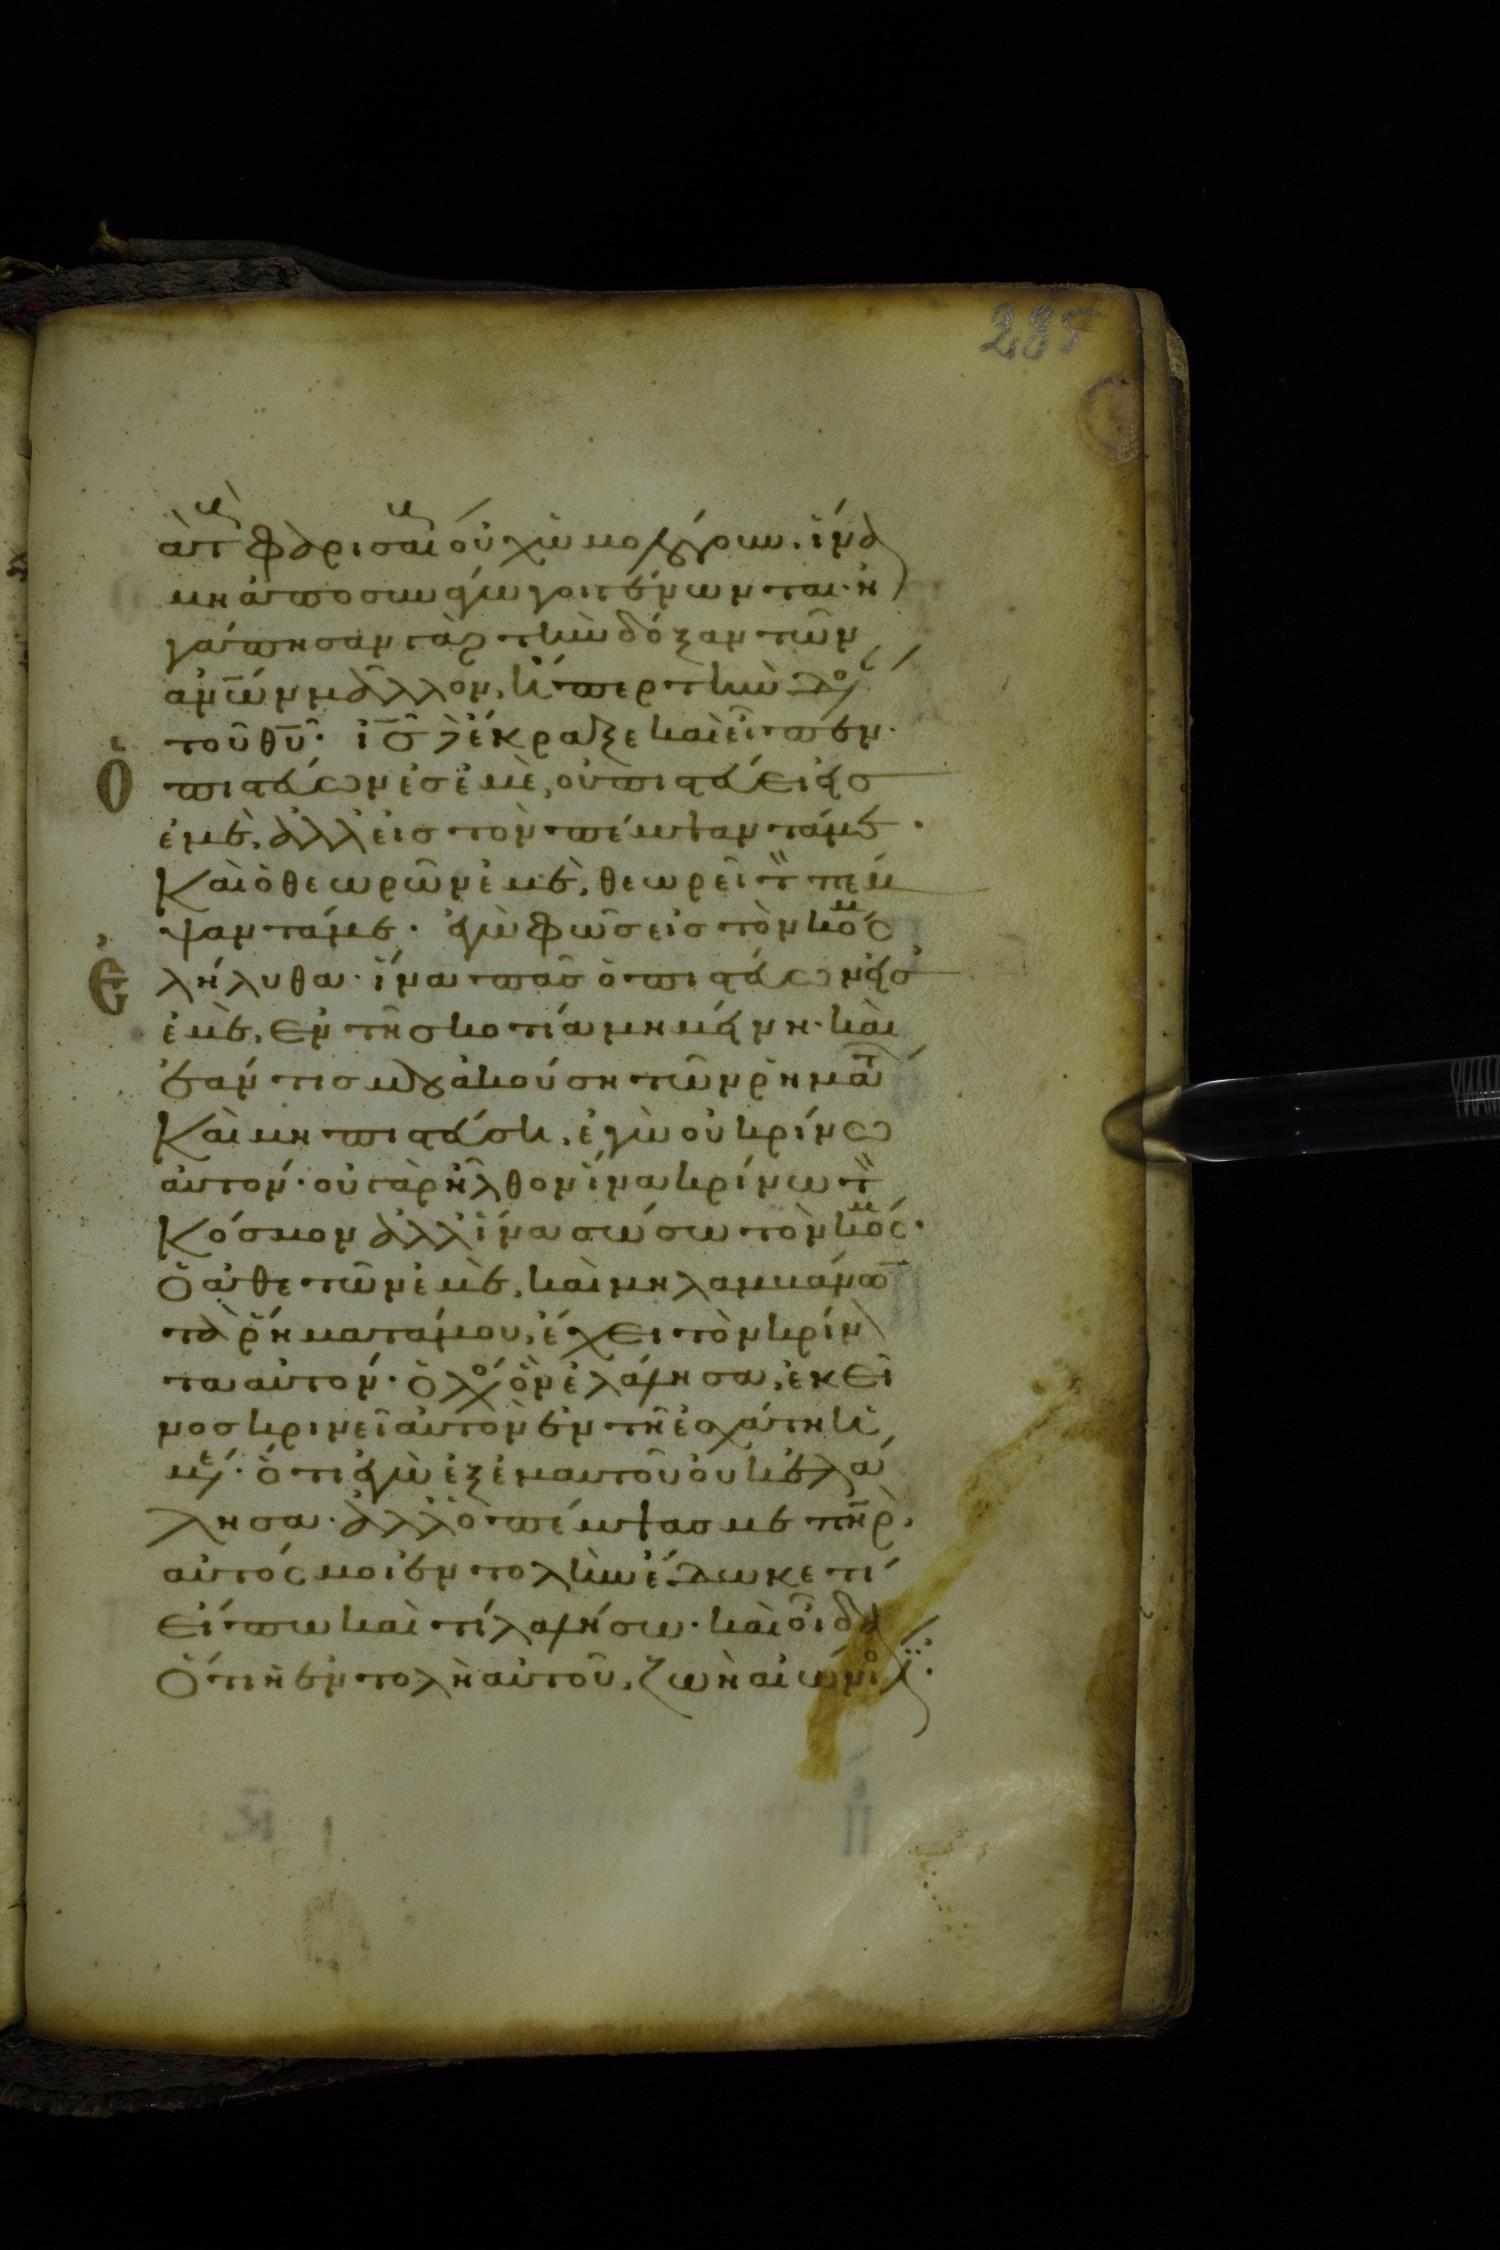 285
ἀλλὰ διὰ τοὺς φαρισαίους οὐχ ὡμολόγουν· ἵνα
μὴ ἀποσυνάγωγοι γένωνται· ἠ
γάπησαν γὰρ τὴν δόξαν τῶν
ἀν̅ω̅ν μᾶλλον, ἤπερ τὴν δόξ
τοῦ θ̅υ̅· ι̅σ̅ δὲ ἔκραξε καὶ εἶπεν·
Ὁ πιστεύων εἰσ ἐμὲ, οὐ πιστεύει εἰσ
ἐμὲ, ἀλλ εἰσ τὸν πέμψαντά με·
Καὶ ὁ θεωρῶν ἐμὲ, θεωρεῖ τὸν πέμ
ψαντά με· ἐγὼ φῶς εἰσ τὸν κόσμ
Ἐλήλυθα· ἵνα πᾶσ ὁ πιστεύων εἰσ
ἐμὲ, ἐν τῆ σκοτία μὴ μείνη· καὶ
ἐάν τισ μου ἀκούση τῶν ῥημάτ
Καὶ μὴ πιστεύση, ἐγὼ οὐ κρίνω
αὐτόν· οὐ γὰρ ἦλθον ἵνα κρίνω τὸν
Κόσμον ἀλλ ἵνα σώσω τὸν κόσμ·
Ὁ ἀθετῶν ἐμὲ, καὶ μὴ λαμβάνων
τὰ ῥήματά μου, ἔχει τὸν κρίνον
τα αὐτόν· Ὁ λόγο ὃν ἐλάλησα, ἐκεῖ
νοσ κρινεῖ αὐτὸν ἐν τῆ ἐσχάτη ἡ
μέ· ὅτι ἐγὼ ἐξ ἐμαυτοῦ οὐκ ἐλά
λησα· ἀλλ ὁ πέμψασ με π̅η̅ρ,
αὐτός μοι ἐντολὴν ἔδωκε τί
εἴπω καὶ τί λαλήσω· καὶ οἶδα
Ὅτι ἡ ἐντολὴ αὐτοῦ, ζωὴ αἰώνιό